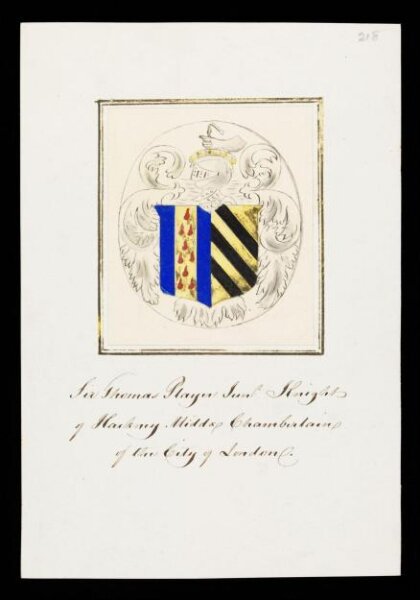 218
Sir Thomas Player Junr. Knight
of Hackney Middx Chamberlain
of the City of London.